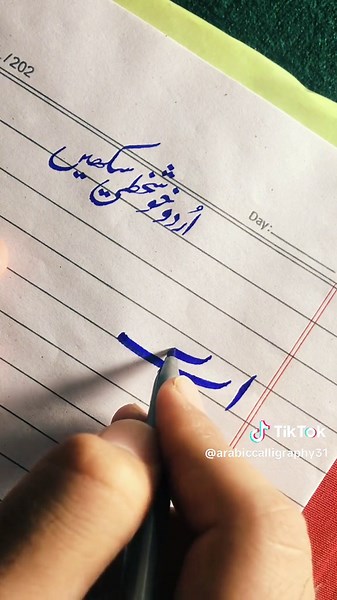 /202
Day:
اُردو خوشخطی سیکھیں
TikTok
@arabiccalligraphy31